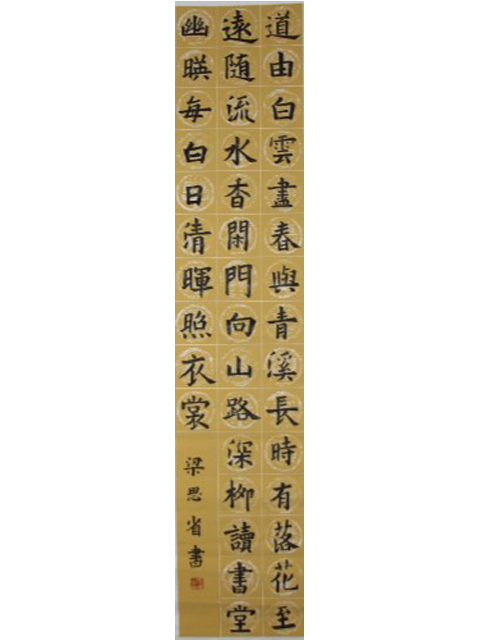 道由白雲盡春與青溪長時有落花至
遠随流水香閑門向山路深栁讀書堂
幽暎每白日清暉照衣裳
梁思省書